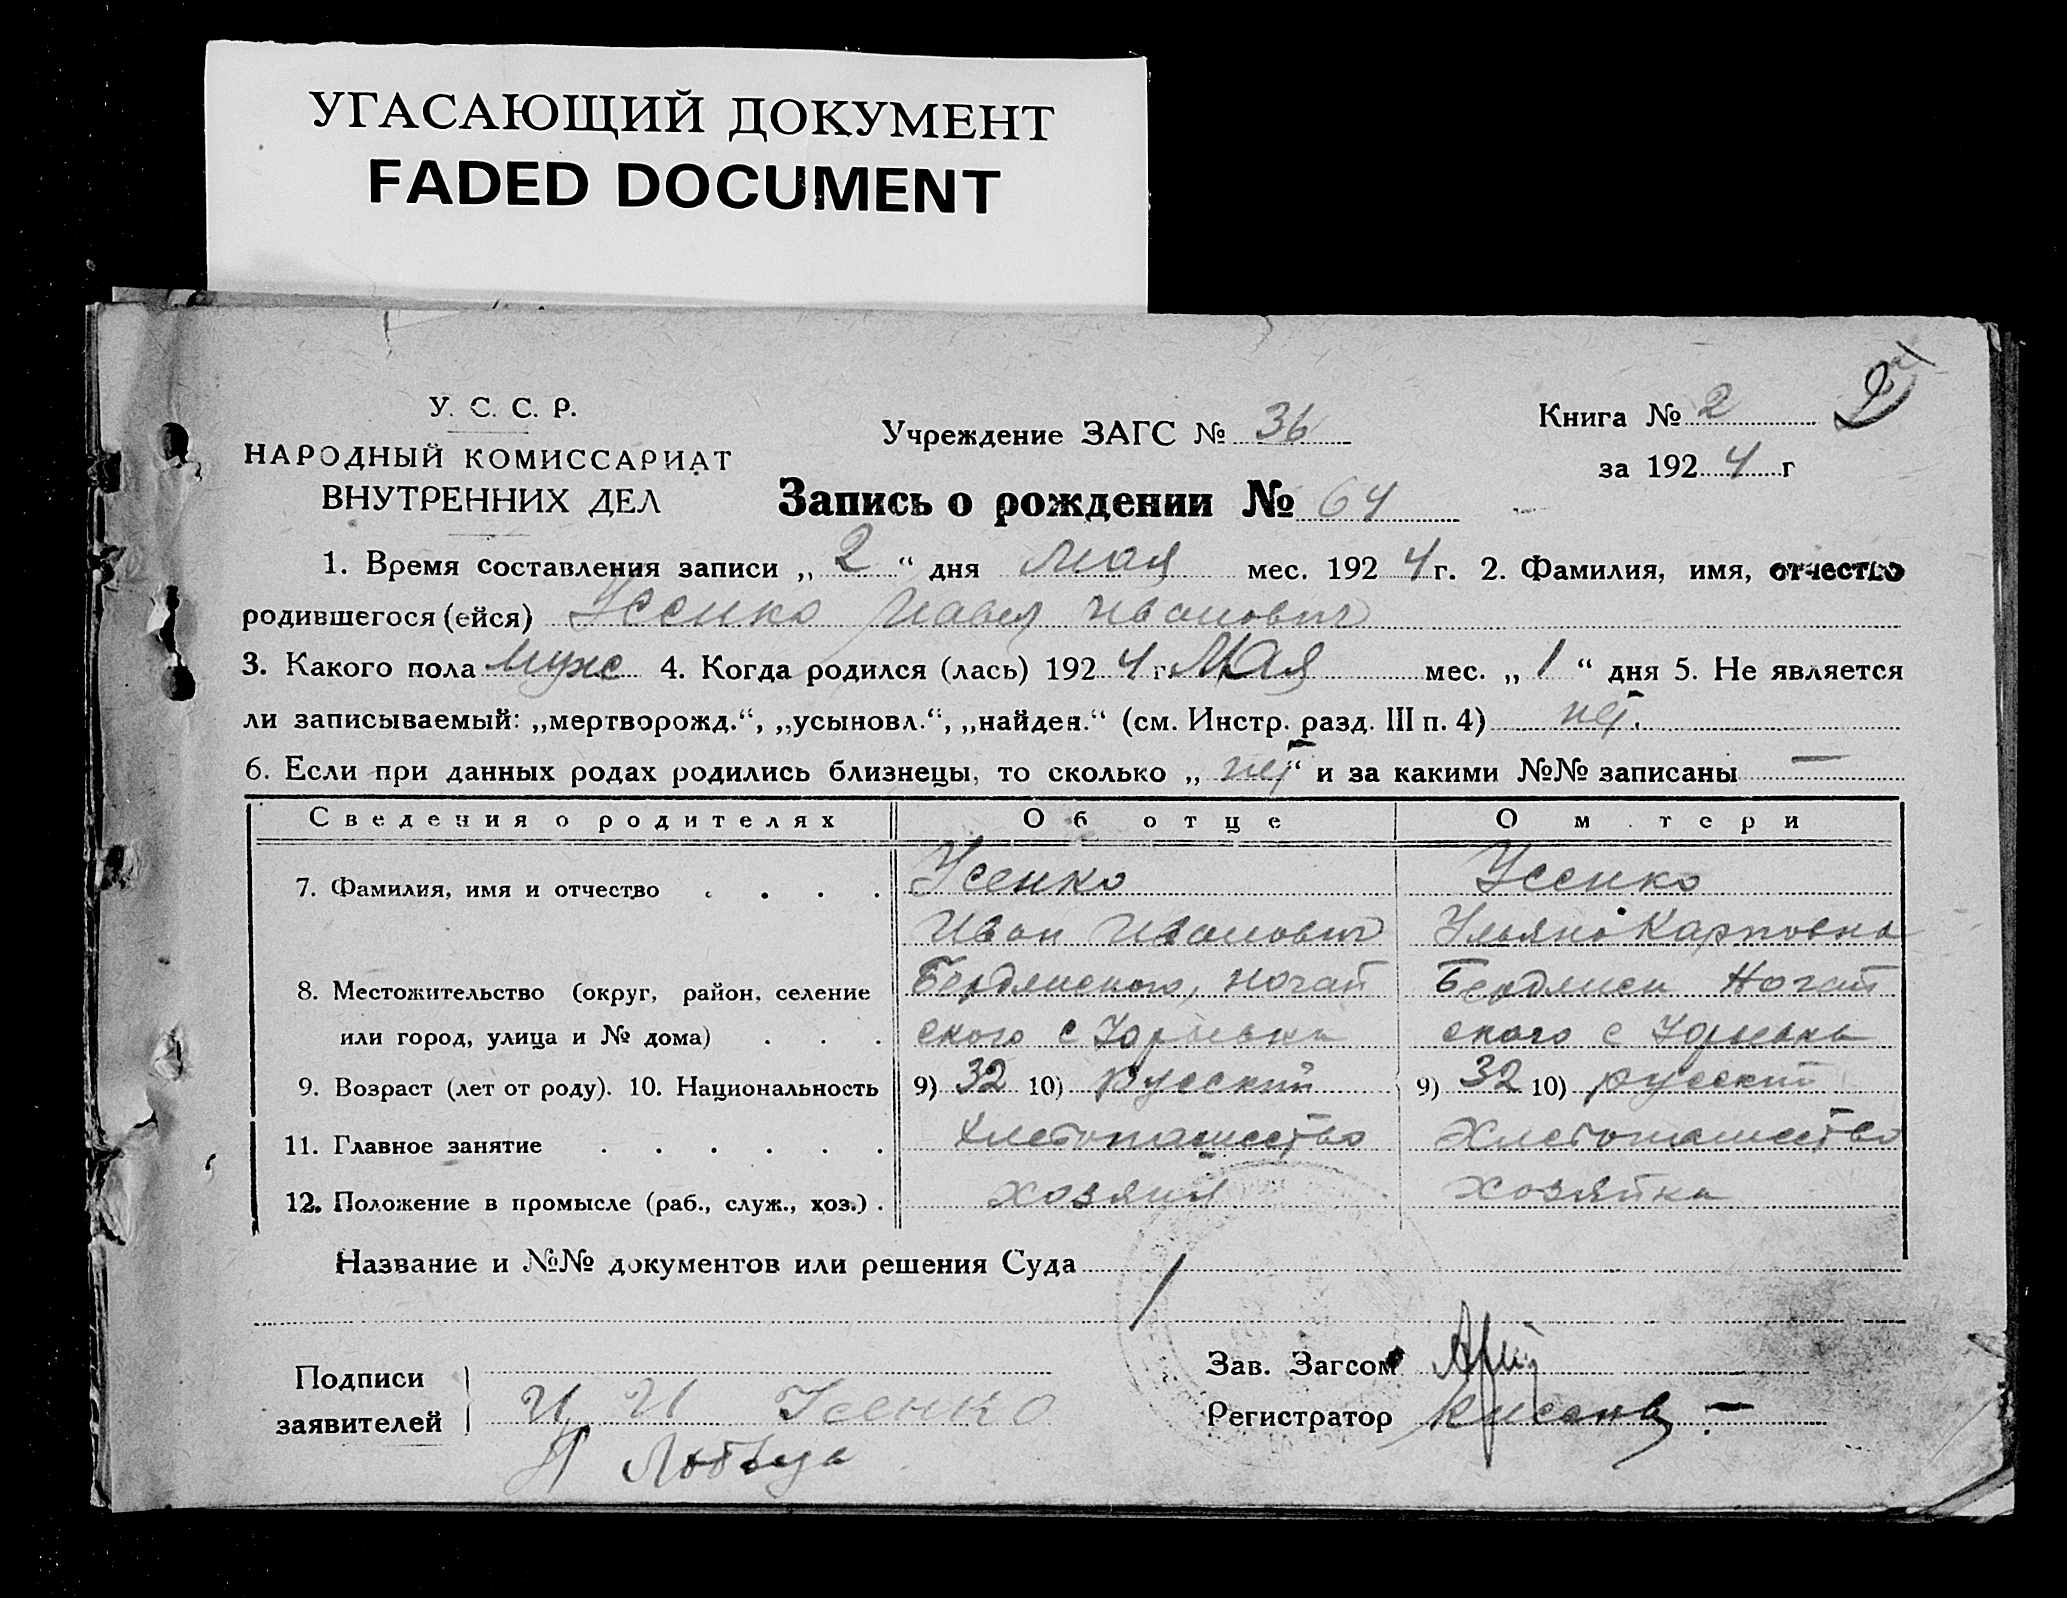 УГАСАЮЩИЙ ДОКУМЕНТ
FADED DOCUMENT
У. С. С. Р.
НАРОДНЫЙ КОМИССАРИАТ
ВНУТРЕННИХ ДЕЛ
Учреждение ЗАГС № 36
Книга № 2
за 1924 г
Запись о рождении № 64
1. Время составления записи „ 2 “ дня Мая мес. 1924 г. 2. Фамилия, имя, отчество
родившегося (ейся) Усенко Павел Иванович
3. Какого пола муж 4. Когда родился (лась) 1924 г. Мая мес. „ 1 “ дня 5. Не является
ли записываемый: „мертворожд.“, „усыновл.“, „найден.“ (см. Инстр. разд. III п. 4) нет.
6. Если при данных родах родились близнецы, то сколько „ нет “ и за какими №№ записаны —
Сведения о родителях Об отце О м тери
7. Фамилия, имя и отчество . . . . Усенко Усенко
Иван Иванович Ульяна Карповна
8. Местожительство (округ, район, селение Бердянского, Ногай Бердянск Ногай
или город, улица и № дома) . . . ского с ского с
9. Возраст (лет от роду). 10. Национальность 9) 32 10) русский 9) 32 10) русский
11. Главное занятие . . . . . . Хлебопашество Хлебопашество
12. Положение в промысле (раб., служ., хоз.) . хозяин хозяйка
Название и №№ документов или решения Суда
Подписи
заявителей
И И Усенко
Зав. Загсом
Регистратор